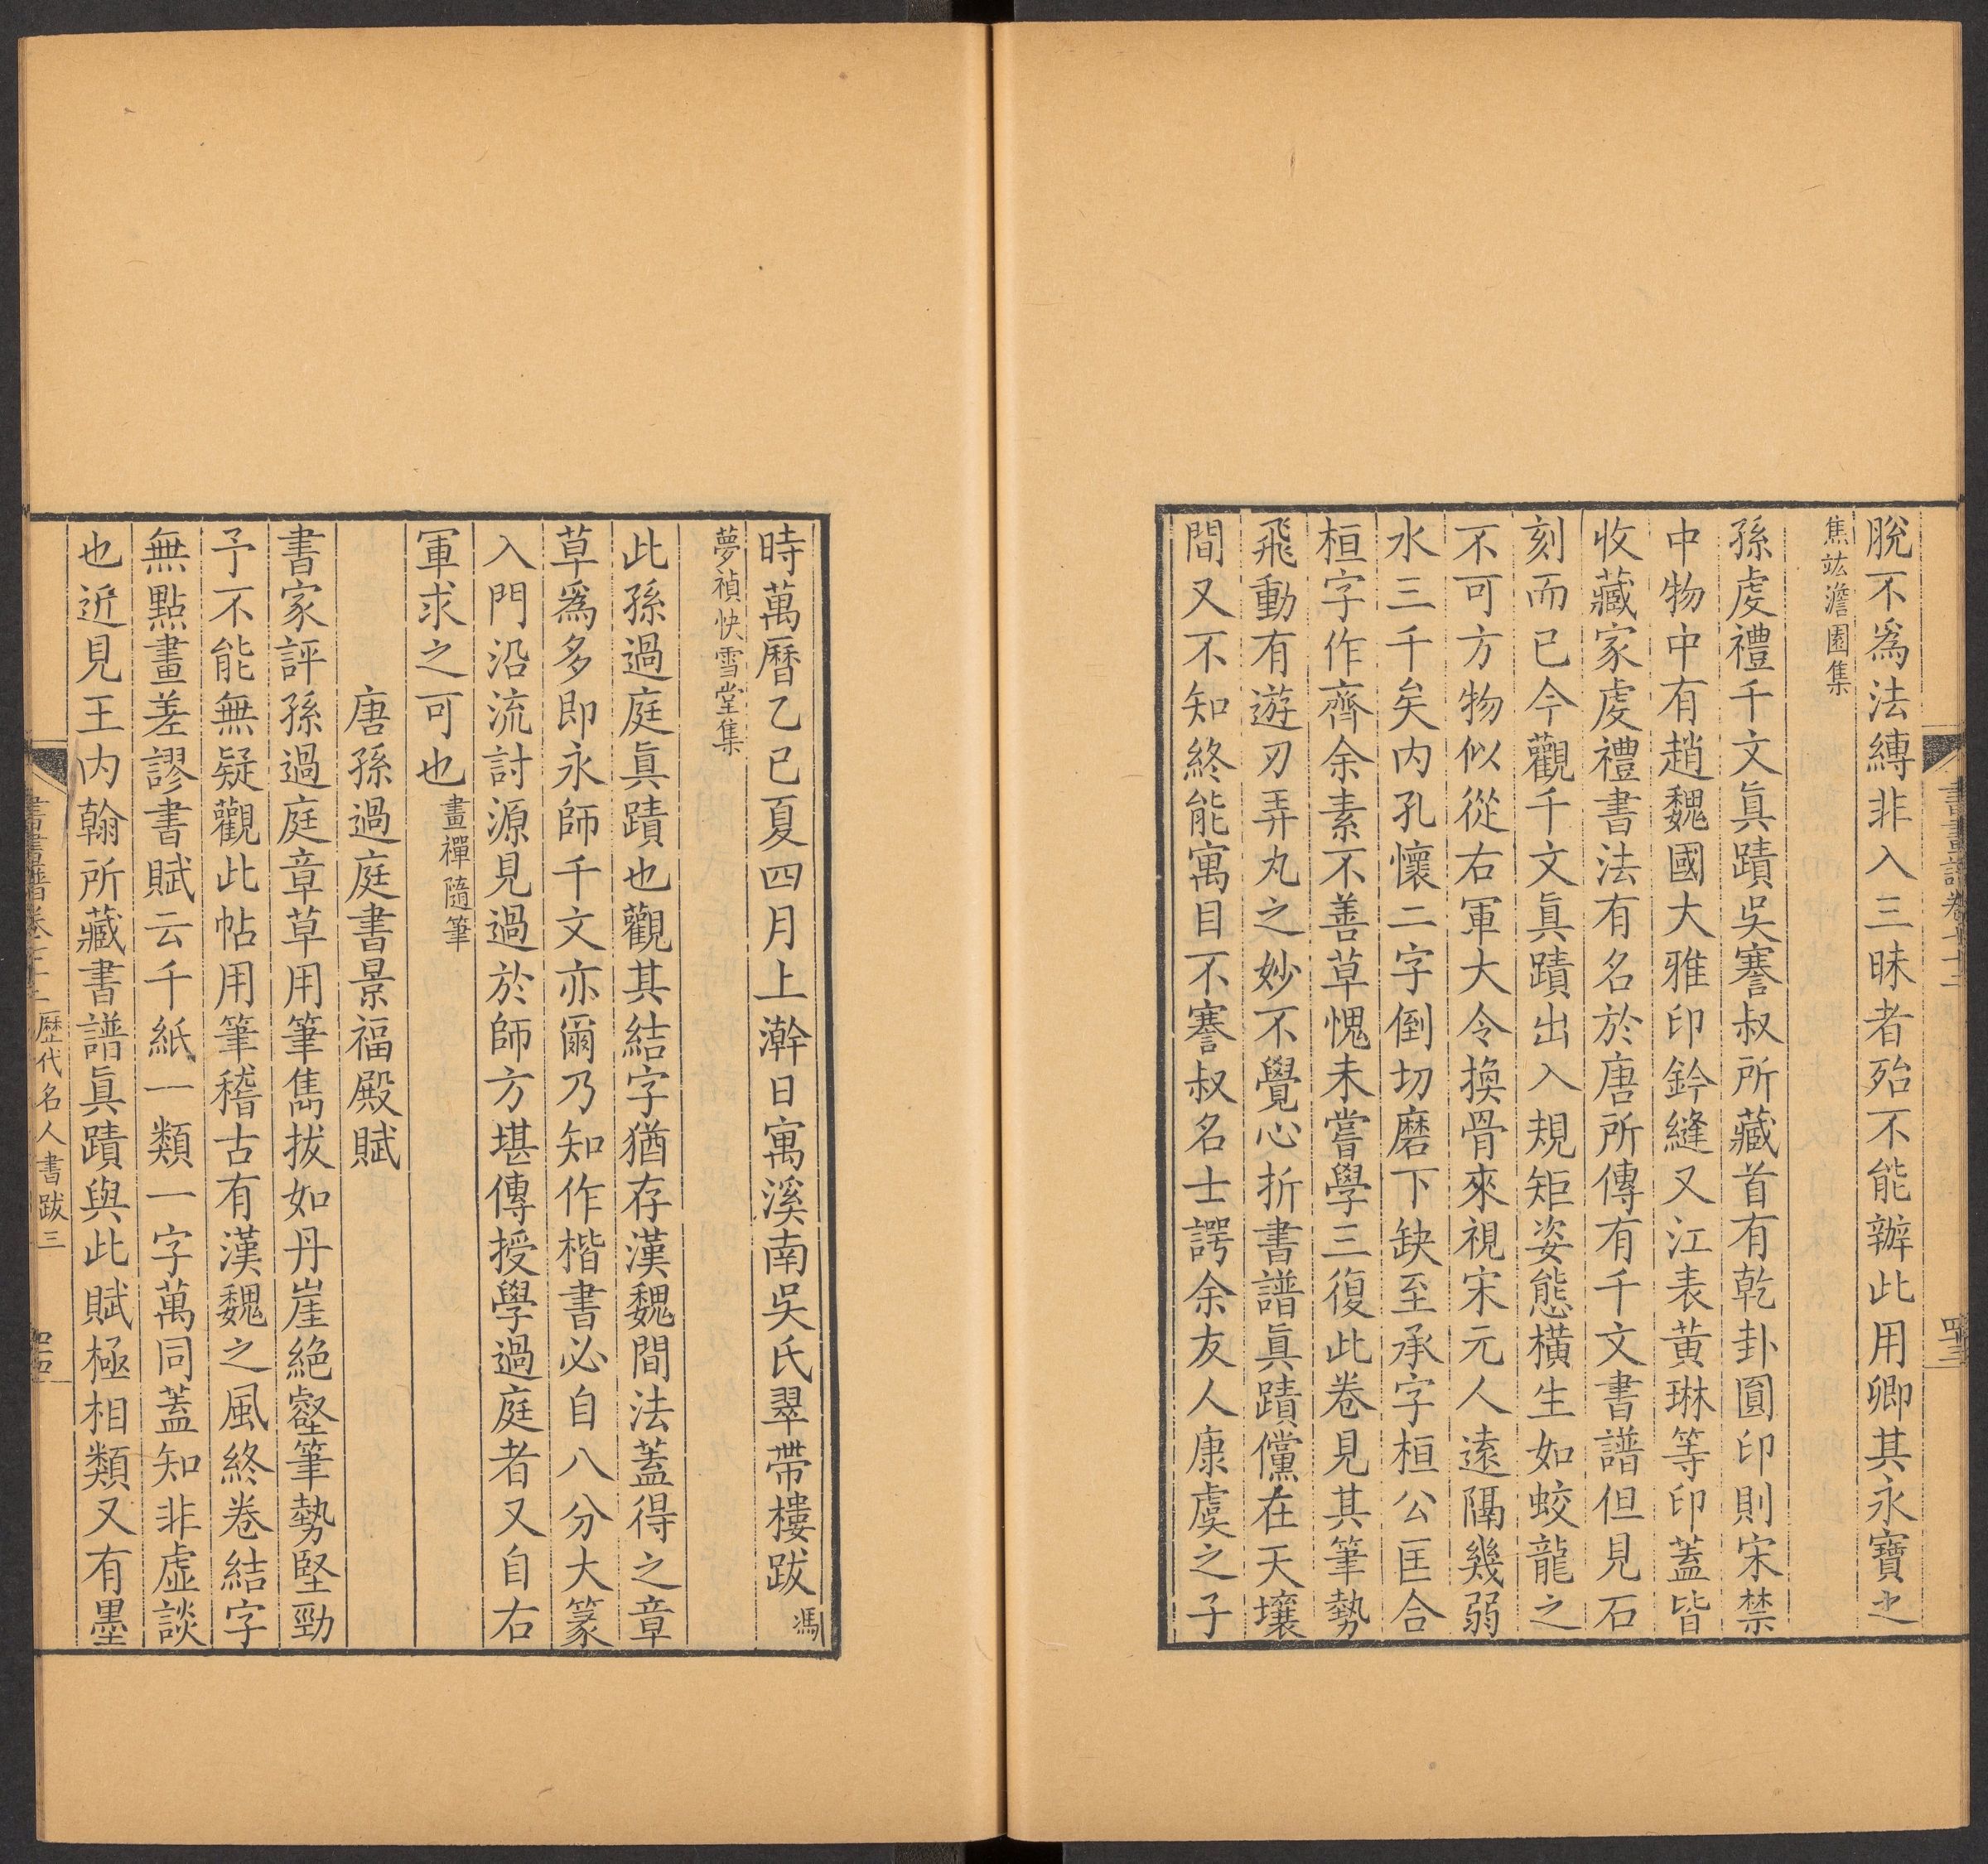 脫不爲法縛非入三昧者殆不能辦此用卿其永寶之
焦竑澹園集
孫虔禮千文眞蹟吳寋叔所藏首有乾卦圓印則宋禁
中物中有趙魏國大雅印鈐縫又江表黄琳等印蓋皆
收藏家虔禮書法有名於唐所傳有千文書譜但見石
刻而已今觀千文眞蹟出入規矩姿態橫生如蛟龍之
不可方物似從右軍大令換骨來視宋元人遠隔幾弱
水三千矣内孔懷二字倒切磨下缺至承字桓公匡合
桓字作齊余素不善草愧未嘗學三復此卷見其筆勢
飛動有遊刃弄丸之妙不覺心折書譜眞蹟儻在天壤
間又不知終能寓目不寋叔名士諤余友人康虞之子
書畫譜卷七十三
四十三
時萬曆乙巳夏四月上澣日寓溪南吳氏翠帶樓跋馮
夢禎快雪堂集
此孫過庭眞蹟也觀其結字猶存漢魏間法蓋得之章
草爲多即永師千文亦爾乃知作楷書必自八分大篆
入門沿流討源見過於師方堪傳授學過庭者又自右
軍求之可也畫禪隨筆
唐孫過庭書景福殿賦
書家評孫過庭章草用筆雋拔如丹崖絶壑筆勢堅勁
予不能無疑觀此帖用筆稽古有漢魏之風終卷結字
無點畫差謬書賦云千紙一類一字萬同蓋知非虛談
也近見王内翰所藏書譜眞蹟與此賦極相類又有墨
歷代名人書跋三